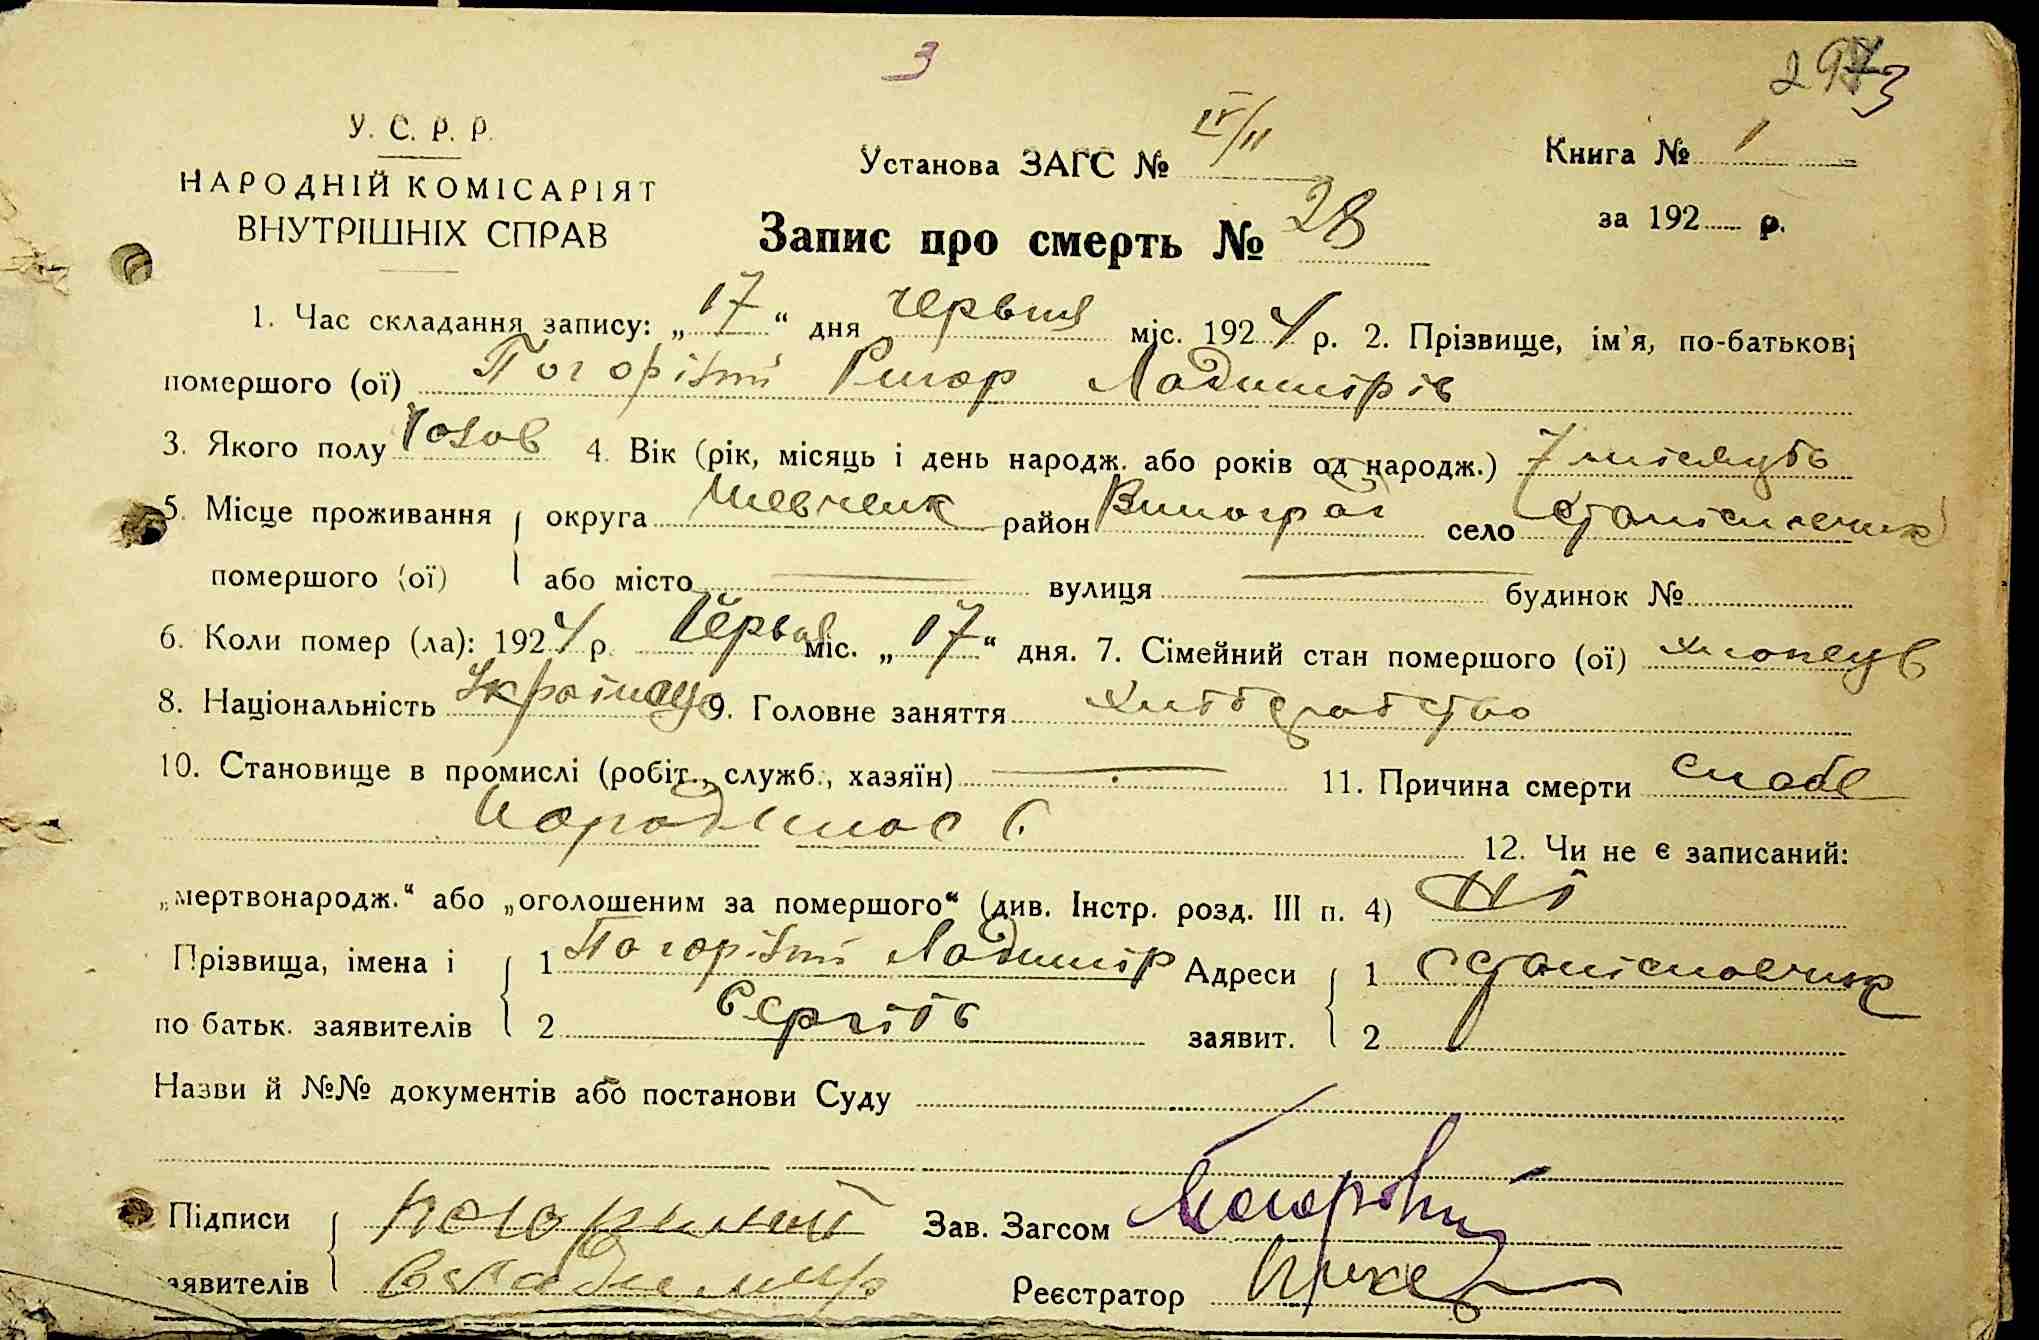 3
2973
У. С. Р. Р.
НАРОДНІЙ КОМІСАРІЯТ
ВНУТРІШНІХ СПРАВ
Установа ЗАГС № IV/II
Книга № 1
за 192 р.
Запис про смерть № 28
1. Час складання запису: „17“ дня червня міс. 1924 р. 2. Прізвище, ім'я, по-батькові
помершого (ої) Погорілий Ладимірів
3. Якого полу 4. Вік (рік, місяць і день народж. або років од народж.) 7 місяців
5. Місце проживання округа Шевченк район Виноград село Станіславчик
помершого (ої) або місто вулиця будинок №
6. Коли помер (ла): 1924 р. Червня міс. „17“ дня. 7. Сімейний стан помершого (ої) хлопець
8. Національність Українець 9. Головне заняття
10. Становище в промислі (робіт., служб., хазяїн) 11. Причина смерти слабе
народ
12. Чи не є записаний:
„мертвонародж.“ або „оголошеним за помершого“ (див. Інстр. розд. III п. 4) Ні
Прізвища, імена і 1 Погорілий Ладимір Адреси 1 Станіславчик
по батьк. заявителів 2 Сергіїв заявит. 2
Назви й №№ документів або постанови Суду
Підписи Погорилий Зав. Загсом
заявителів Владимир Реєстратор